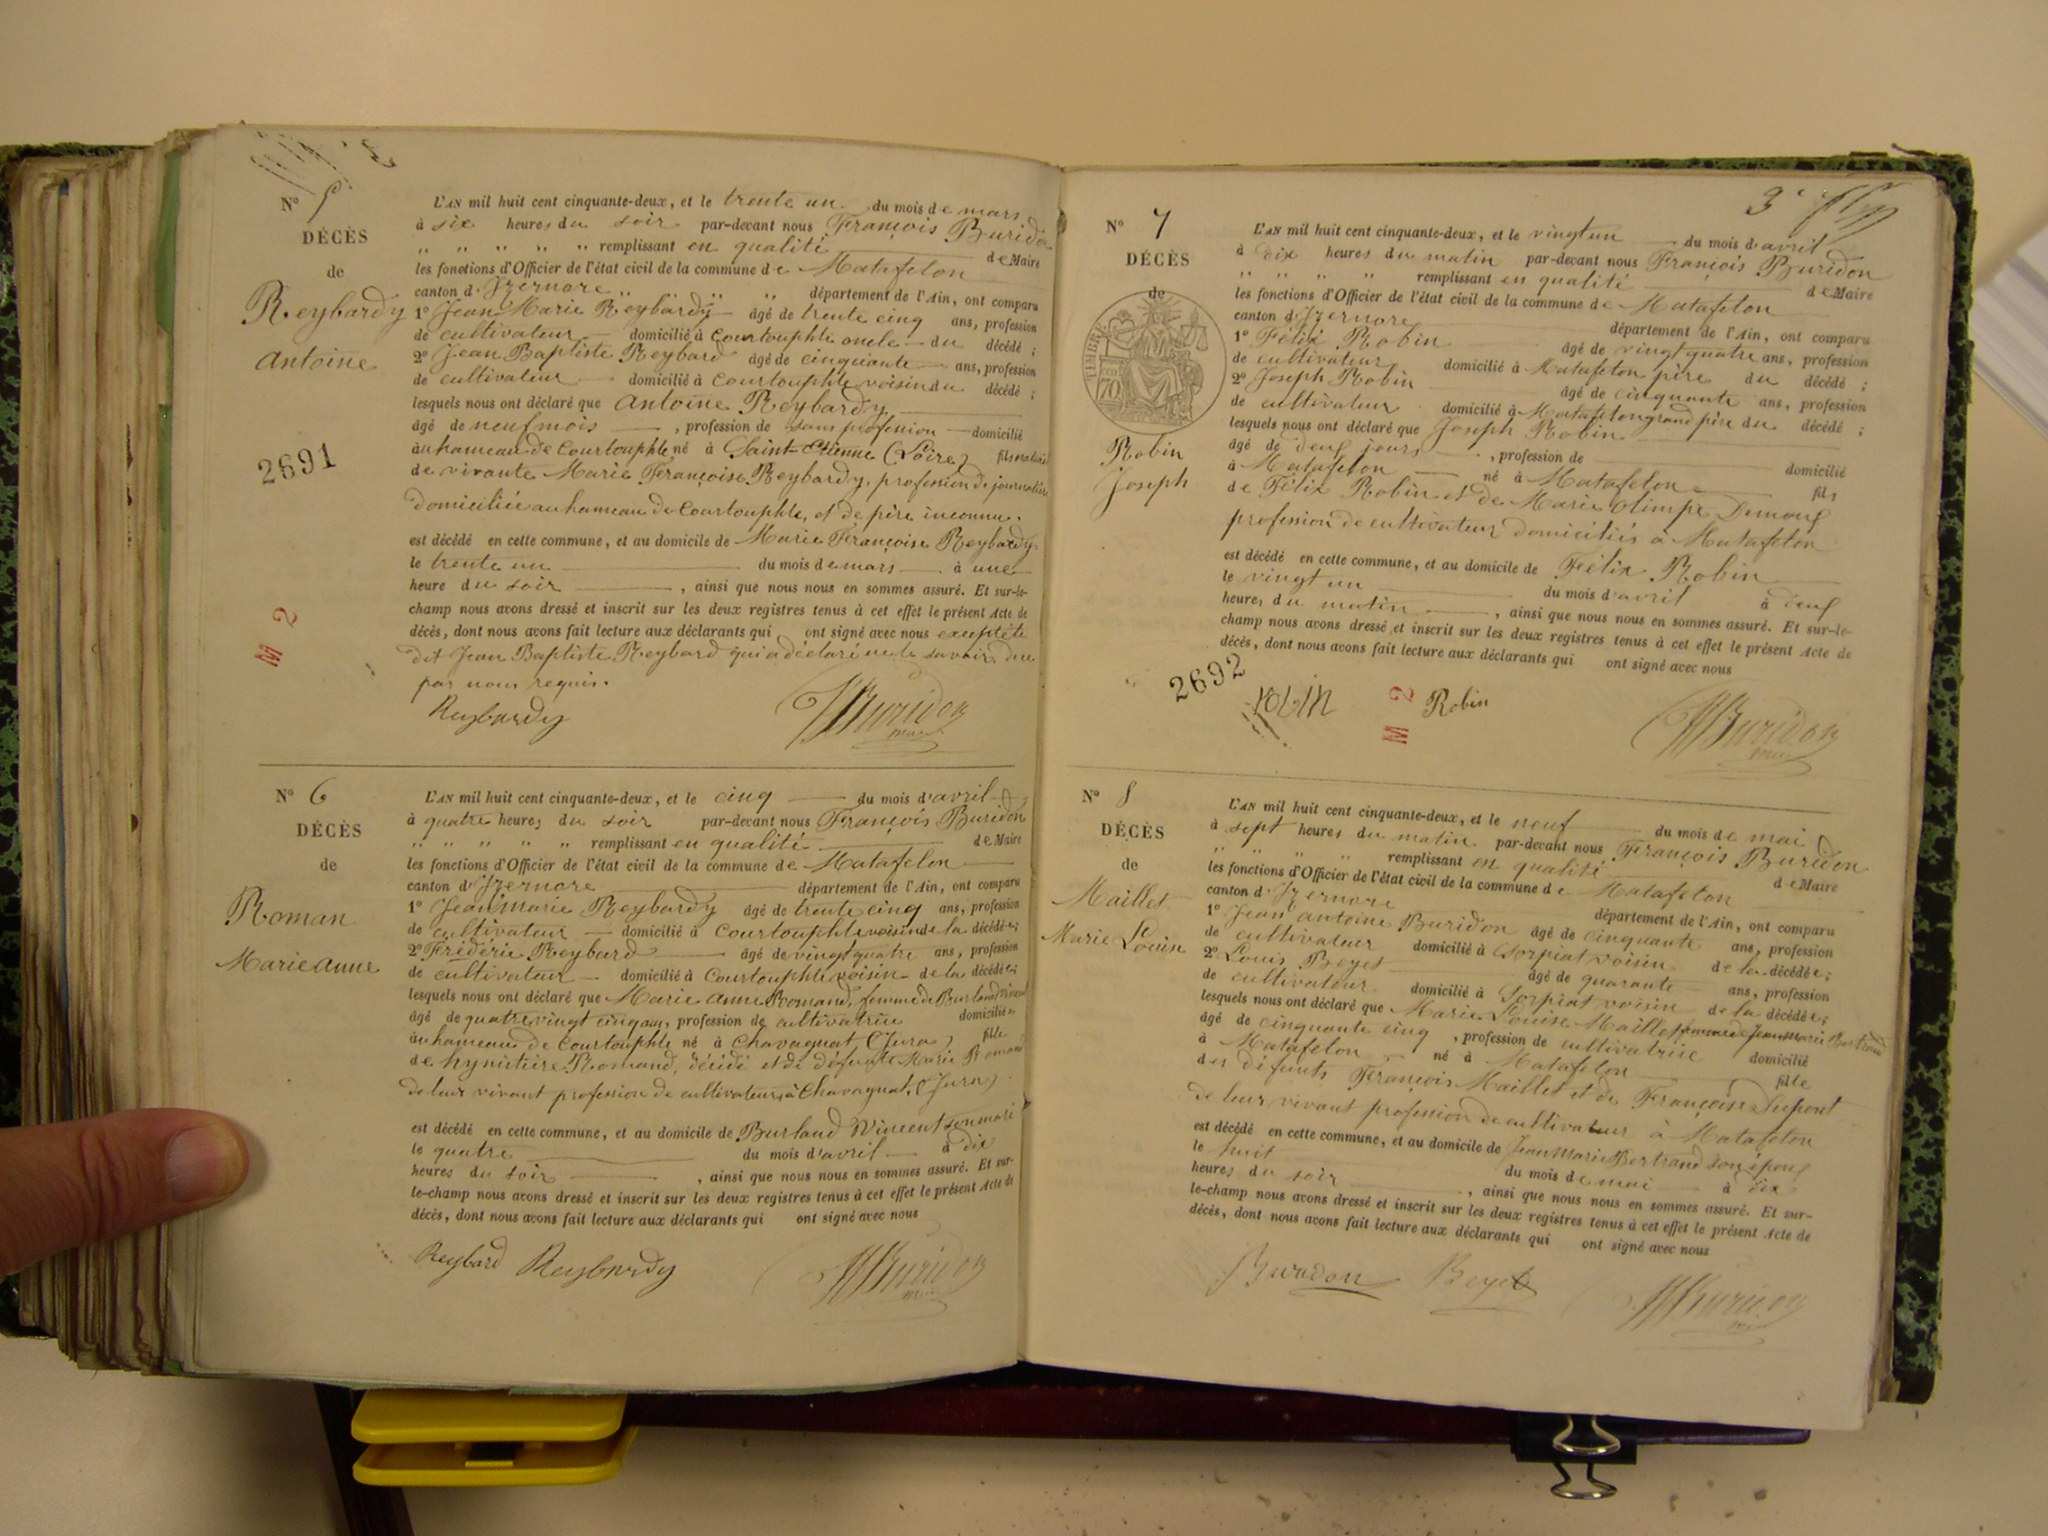 N° 5
DÉCÈS
de
Reybardy
antoine
2691
M 2
L'AN mil huit cent cinquante-deux, et le trente un du mois de mars
à six heures du soir par-devant nous François Buridon
" " " " " remplissant en qualité de Maire
les fonctions d'Officier de l'état civil de la commune de Matafelon
canton d'Izernore " " " département de l'Ain, ont comparu
1° Jean Marie Reybardy âgé de trente cinq ans, profession
de cultivateur domicilié à Courtouphle oncle du décédé ;
2° Jean Baptiste Reybard âgé de cinquante ans, profession
de cultivateur domicilié à Courtouphle voisin du décédé ;
lesquels nous ont déclaré que antoine Reybardy
âgé de neuf mois , profession de sans profession domicilié
au hameau de Courtouphle né à Saint-Etienne (Loire) fils naturel
de vivante Marie Françoise Reybardy, profession de journalière
domiciliée au hameau de Courtouphle, et de père inconnu.
est décédé en cette commune, et au domicile de Marie Françoise Reybardy
le trente un du mois de mars à une
heure du soir , ainsi que nous nous en sommes assuré. Et sur-le-
champ nous avons dressé et inscrit sur les deux registres tenus à cet effet le présent Acte de
décès, dont nous avons fait lecture aux déclarants qui ont signé avec nous excepté le
dit Jean Baptiste Reybard qui a déclaré ne le savoir, de ce
par nous requis.
Reybardy Buridon
maire
N° 6
DÉCÈS
de
Roman
Marie anne
L'AN mil huit cent cinquante-deux, et le cinq du mois d'avril
à quatre heures du soir par-devant nous François Buridon
" " " " " remplissant en qualité de Maire
les fonctions d'Officier de l'état civil de la commune de Matafelon
canton d'Izernore département de l'Ain, ont comparu
1° Jean Marie Reybardy âgé de trente cinq ans, profession
de cultivateur domicilié à Courtouphle voisin de la décédée;
2° Frédéric Reybard âgé de vingt quatre ans, profession
de cultivateur domicilié à Courtouphle voisin de la décédée;
lesquels nous ont déclaré que Marie anne Romand, femme de Burland Vincent
âgé de quatre vingt cinq ans, profession de cultivatrice domiciliée
au hameau de Courtouphle né à Chavagnat (Jura) fille
de Romand, décédé et de défunte Marie Romand
de leur vivant profession de cultivateurs à Chavagnat, (Jura)
est décédé en cette commune, et au domicile de Burland Vincent son mari
le quatre du mois d'avril à dix
heures du soir , ainsi que nous nous en sommes assuré. Et sur-
le-champ nous avons dressé et inscrit sur les deux registres tenus à cet effet le présent Acte de
décès, dont nous avons fait lecture aux déclarants qui ont signé avec nous
Reybard Reybardy Buridon
maire
3e
N° 7
DÉCÈS
de
TIMBRE
70
Robin
Joseph
L'AN mil huit cent cinquante-deux, et le vingt un du mois d'avril
à dix heures du matin par-devant nous François Buridon
" " " " remplissant en qualité de Maire
les fonctions d'Officier de l'état civil de la commune de Matafelon
canton d'Izernore département de l'Ain, ont comparu
1° Félix Robin âgé de vingt quatre ans, profession
de cultivateur domicilié à Matafelon père du décédé ;
2° Joseph Robin âgé de cinquante ans, profession
de cultivateur domicilié à Matafelon grand père du décédé ;
lesquels nous ont déclaré que Joseph Robin
âgé de deux jours , profession de domicilié
à Matafelon né à Matafelon fils
de Félix Robin et de Marie Olimpe
profession de cultivateur domiciliés à Matafelon
est décédé en cette commune, et au domicile de Félix Robin
le vingt un du mois d'avril à deux
heures du matin , ainsi que nous nous en sommes assuré. Et sur-le-
champ nous avons dressé et inscrit sur les deux registres tenus à cet effet le présent Acte de
décès, dont nous avons fait lecture aux déclarants qui ont signé avec nous
2692
robin M 2 Robin Buridon
maire
N° 8
DÉCÈS
de
Maillet
Marie Louise
L'AN mil huit cent cinquante-deux, et le neuf du mois de mai
à sept heures du matin par-devant nous François Buridon
" " " " remplissant en qualité de Maire
les fonctions d'Officier de l'état civil de la commune de Matafelon
canton d'Izernore département de l'Ain, ont comparu
1° Jean antoine Buridon âgé de cinquante ans, profession
de cultivateur domicilié à Corpiat voisin de la décédée;
2° Louis Beyet âgé de quarante ans, profession
de cultivateur domicilié à Corpiat voisin de la décédée;
lesquels nous ont déclaré que Marie Louise Maillet femme de Jean Marie Bertrand
âgé de cinquante cinq , profession de cultivatrice domicilié
à Matafelon né à Matafelon fille
des défunts François Maillet et de Françoise Dupont
de leur vivant profession de cultivateur à Matafelon
est décédé en cette commune, et au domicile de Jean Marie Bertrand son époux
le huit du mois de mai à dix
heures du soir , ainsi que nous nous en sommes assuré. Et sur-
le-champ nous avons dressé et inscrit sur les deux registres tenus à cet effet le présent Acte de
décès, dont nous avons fait lecture aux déclarants qui ont signé avec nous
Buridon Beyet Buridon